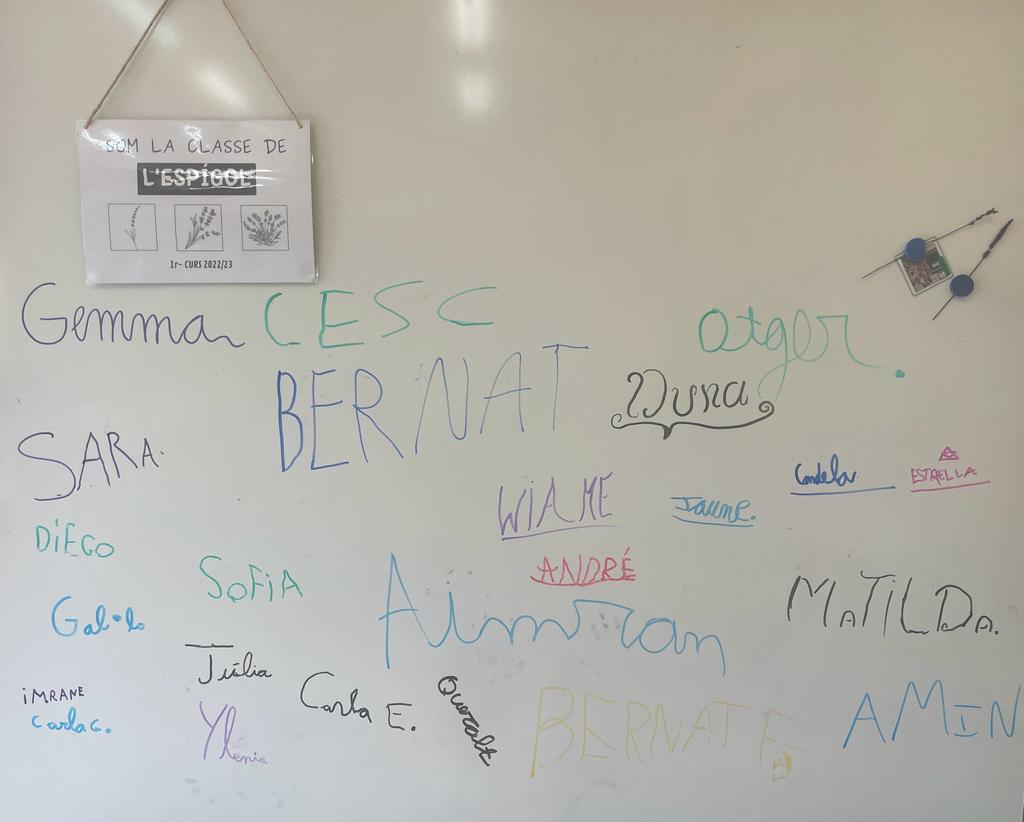 SOM LA CLASSE DE
L'ESPÍGOL
1r- CURS 2022/23
Gemma CESC
Otger.
BERNAT
Duna
SARA.
Candela ESTRELLA
WIAME Jaume.
DIEGO
SOFIA
ANDRÉ
MATILDA.
Gal·la
Aimran
Júlia
iMRANE
Carla E.
Queralt
Carla G.
Ylenia
BERNAT F.
AMIN